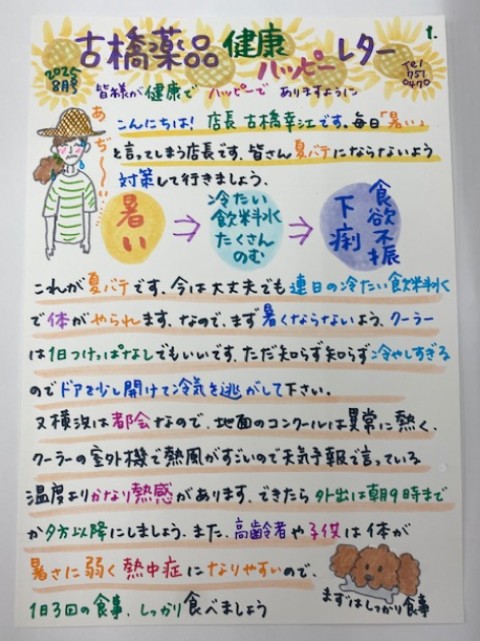 1.
古橋薬品 健康ハッピーレター
2025 8月号
Tel 751 0470
皆様が健康でハッピーでありますように
あぢ〜
こんにちは！店長古橋幸江です。毎日「暑い」
と言ってしまう店長です。皆さん夏バテにならないよう
対策して行きましょう。
暑い → 冷たい飲料水たくさんのむ → 食欲不振 下痢
これが夏バテです。今は大丈夫でも連日の冷たい飲料水
で体がやられます。なので、まず暑くならないよう、クーラー
は1日つけっぱなしでもいいです。ただ知らず知らず冷やしすぎる
のでドアを少し開けて冷気を逃がして下さい。
又横浜は都会なので、地面のコンクールは異常に熱く、
クーラーの室外機で熱風がすごいので天気予報で言っている
温度よりかなり熱感があります。できたら外出は朝9時まで
か夕方以降にしましょう。また、高齢者や子供は体が
暑さに弱く熱中症になりやすいので、
1日3回の食事、しっかり食べましょう
まずはしっかり食事